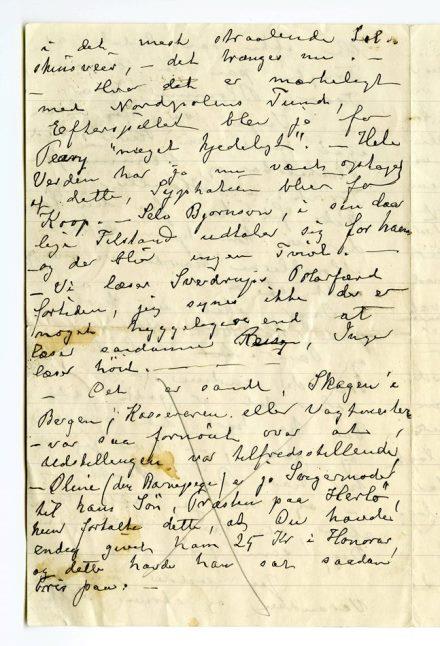 i det mest straalende Sol-
skinsveir, – det trænges nu. –
– Hvor det er mærkeligt
med Nordpolens Fund,
Efterspillet blev jo for
Peary "meget kjedeligt". – Hele
Verden har jo nu været optaget
af dette, Sympathien blev for
Koop. – Selv Bjørnson, i sin daar
lige Tilstand udtaler sig for ham
og der blir ingen Tvivl. –
– Vi læser Sverdrups Polarfærd
fortiden, jeg synes ikke der er
noget hyggeligere end at
læse saadanne Reiser, Inger
læser høit. –
– Det er sandt, Skagen i
Bergen, Kassereren eller Vagtmester
– var saa fornøiet over at
Udstillingen var tilfredsstillende
– Oline (din Barnepige) er jo Svigermoder
til hans Søn, Præsten paa Herlø,
hun fortalte dette, at Du havde
endog givet ham 25 Kr i Honorar,
og dette havde han sat saadan
Pris paa. –